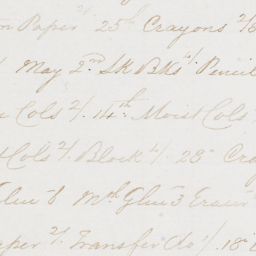 Paper 2/- 25th Crayons 2/6
May 2nd Sk Bks 4/- Pencil
Cols 2/. 14th Moist Cols
Cols 2/. Block 4/. 28th Cra
Glue 6 Mth Glue 3 Eraser
aper 2/. Transfer Do 1/. 18th